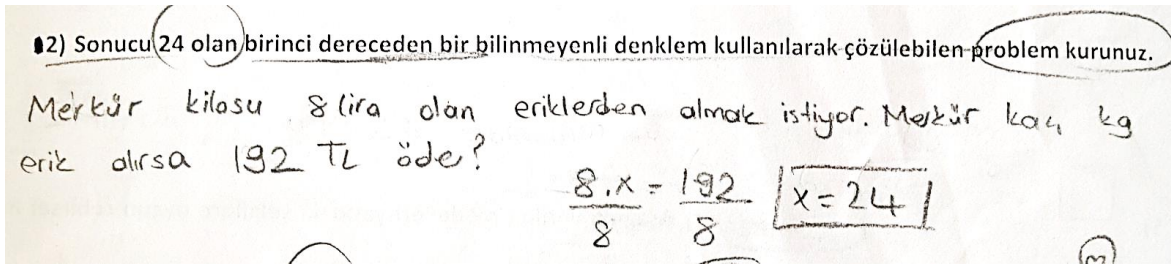 12) Sonucu 24 olan birinci dereceden bir bilinmeyenli denklem kullanılarak çözülebilen problem kurunuz.
Merkür kilosu 8 lira olan eriklerden almak istiyor. Merkür kaç kg
erik alırsa 192 TL öde?
8.x = 192 x = 24
8 8